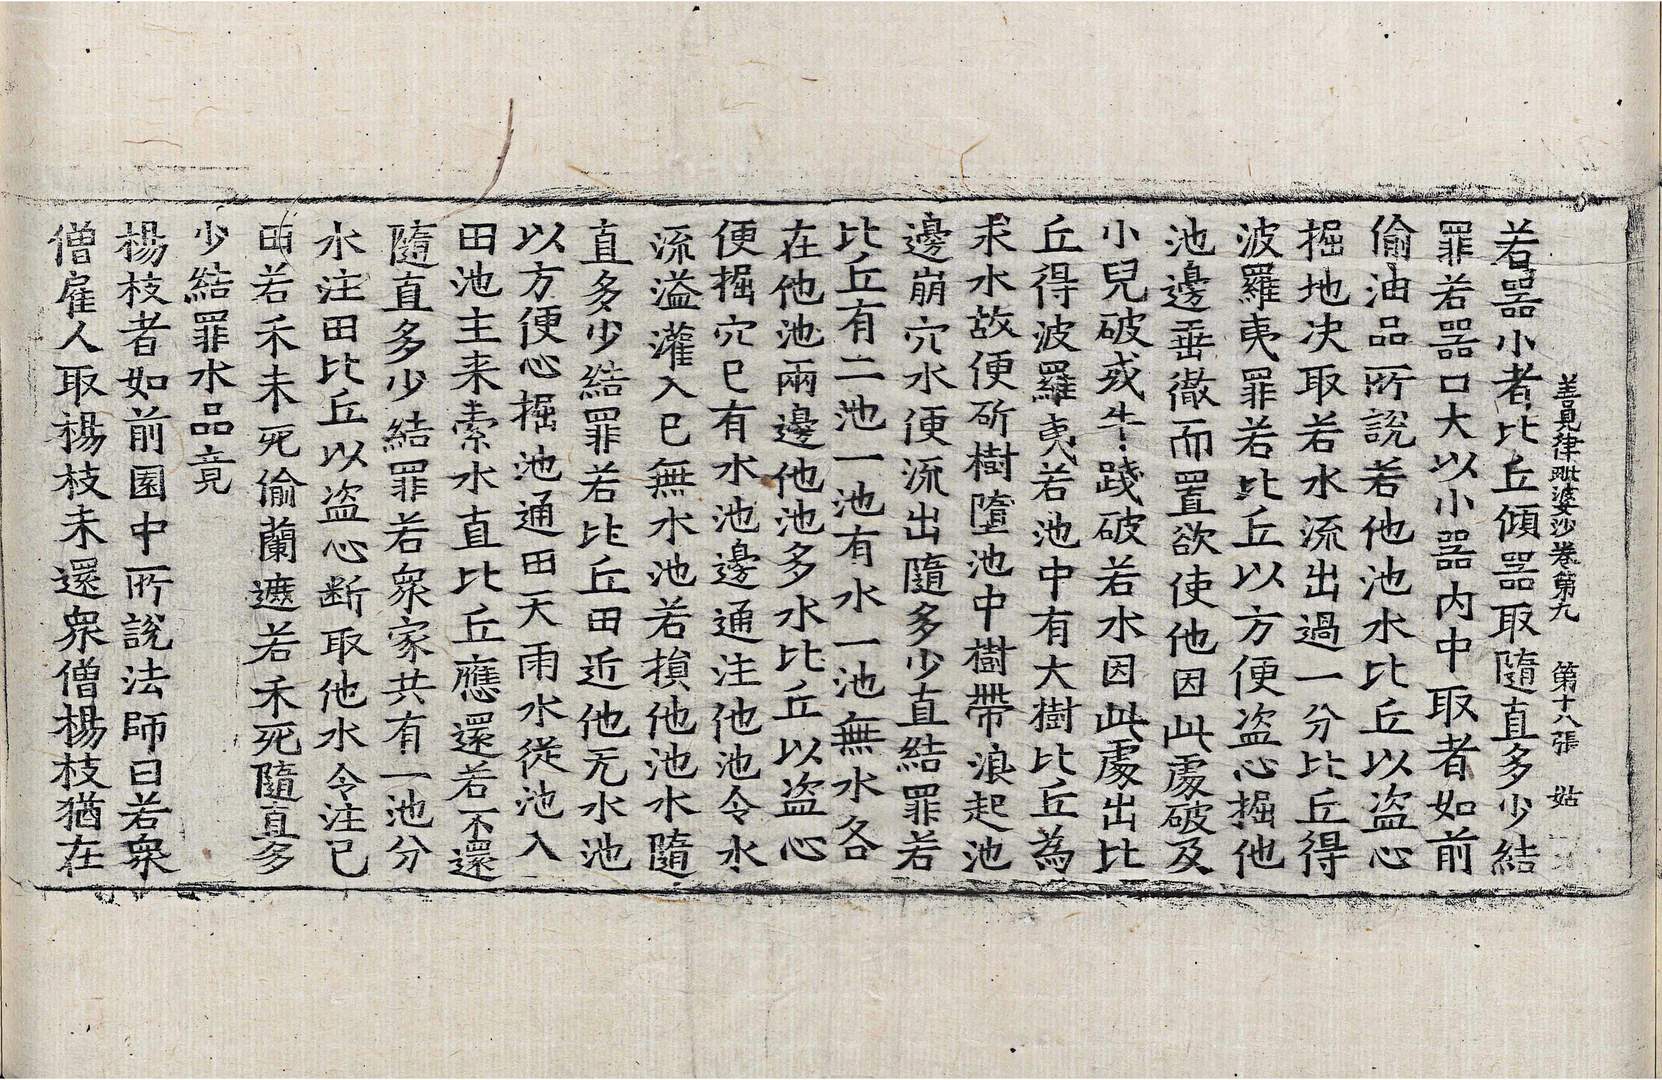 善見律毗婆沙卷第九　第十八張　姑
若噐小者比丘傾噐取隨直多少結
罪若噐口大以小噐內中取者如前
偷油品所說若他池水比丘以盜心
掘地决取若水流出過一分比丘得
波羅夷罪若比丘以方便盜心掘他
池邊垂徹而置欲使他因此處破及
小兒破或牛踐破若水因此處出比
丘得波羅夷若池中有大樹比丘為
求水故便斫樹墮池中樹帶浪起池
邊崩穴水便流出隨多少直結罪若
比丘有二池一池有水一池無水各
在他池兩邊他池多水比丘以盜心
便掘穴已有水池邊通注他池令水
流溢灌入已無水池若損他池水隨
直多少結罪若比丘田近他无水池
以方便心掘池通田天雨水從池入
田池主来索水直比丘應還若不還
隨直多少結罪若衆家共有一池分
水注田比丘以盜心断取他水令注已
田若禾未死偷蘭遮若禾死隨直多
少結罪水品竟
楊枝者如前園中所說法師曰若衆
僧雇人取楊枝未還衆僧楊枝猶在